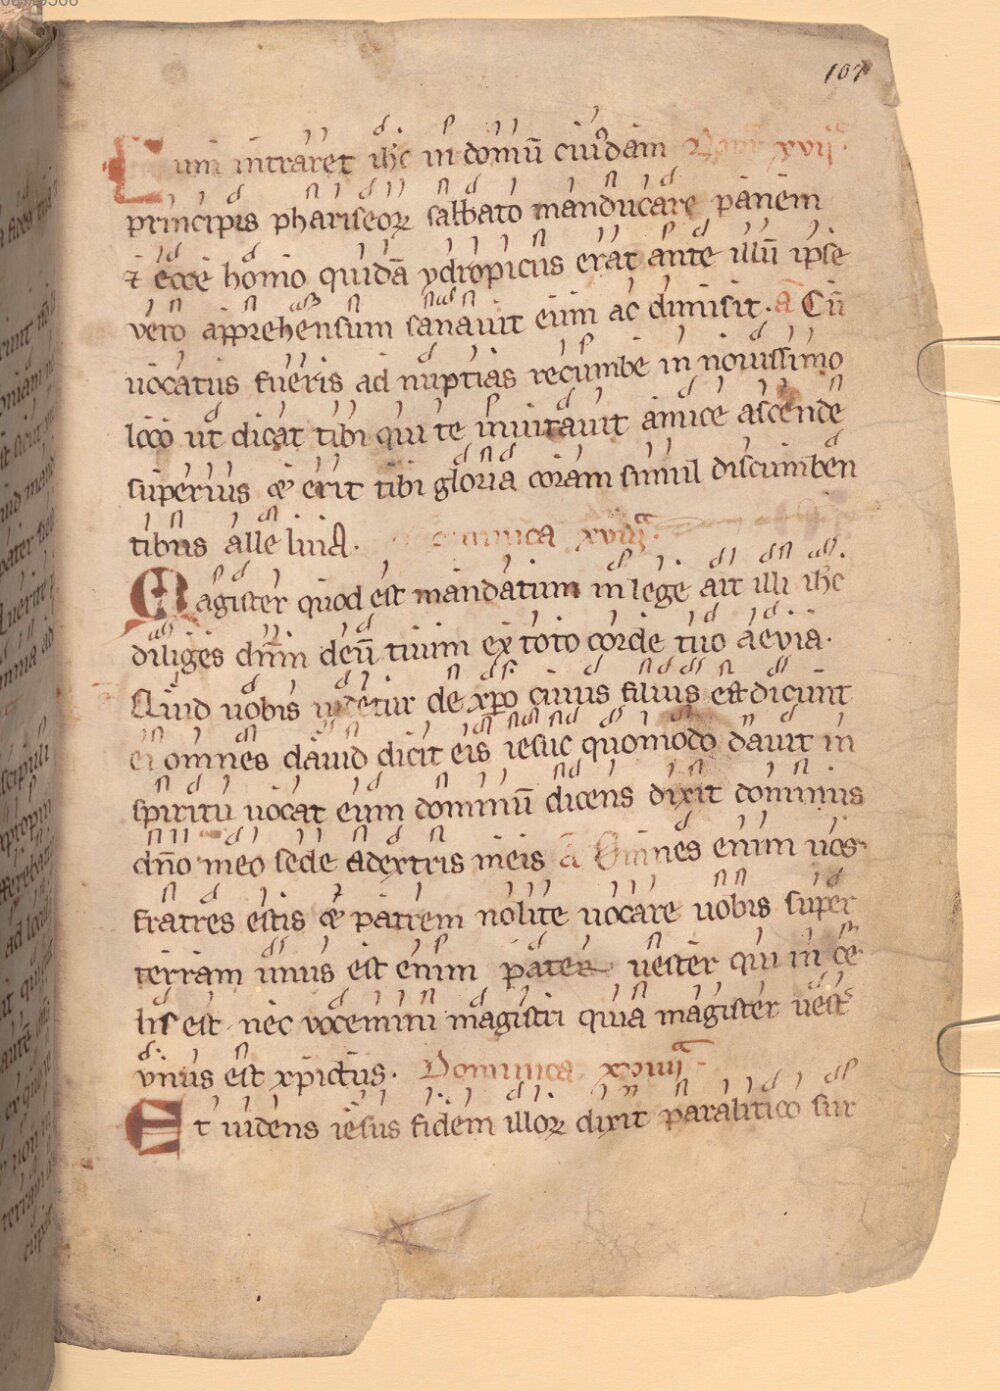 107
Cum intraret ihc in domū cuiusdam xvii.
principis phariseoꝝ sabbato manducare panem
⁊ ecce homo quidā ydropicus erat ante illū ipse
vero apprehensum sanavit eum ac dimisit. a Cū
uocatus fueris ad nuptias recumbe in nouissimo
loco ut dicat tibi qui te inuitauit amice ascende
superius ⁊ erit tibi gloria coram simul discumben
tibus alleluia. Dominica xviii.
Magister quod est mandatum in lege ait illi ihc
diliges dn̄m deū tuum ex toto corde tuo aevia.
Quid uobis uidetur de xp̄o cuius filius est dicunt
ei omnes dauid dicit eis iesus quomodo dauit in
spiritu uocat eum dominū dicens dixit dominus
dn̄o meo sede adextris meis ā Omnes enim uos
fratres estis ⁊ patrem nolite uocare uobis super
terram unus est enim pater uester qui in ce
lis est nec vocemini magistri quia magister uest
vnus est xpictus. Dominica xviiii
Et uidens iesus fidem illoꝝ dixit paralitico sur